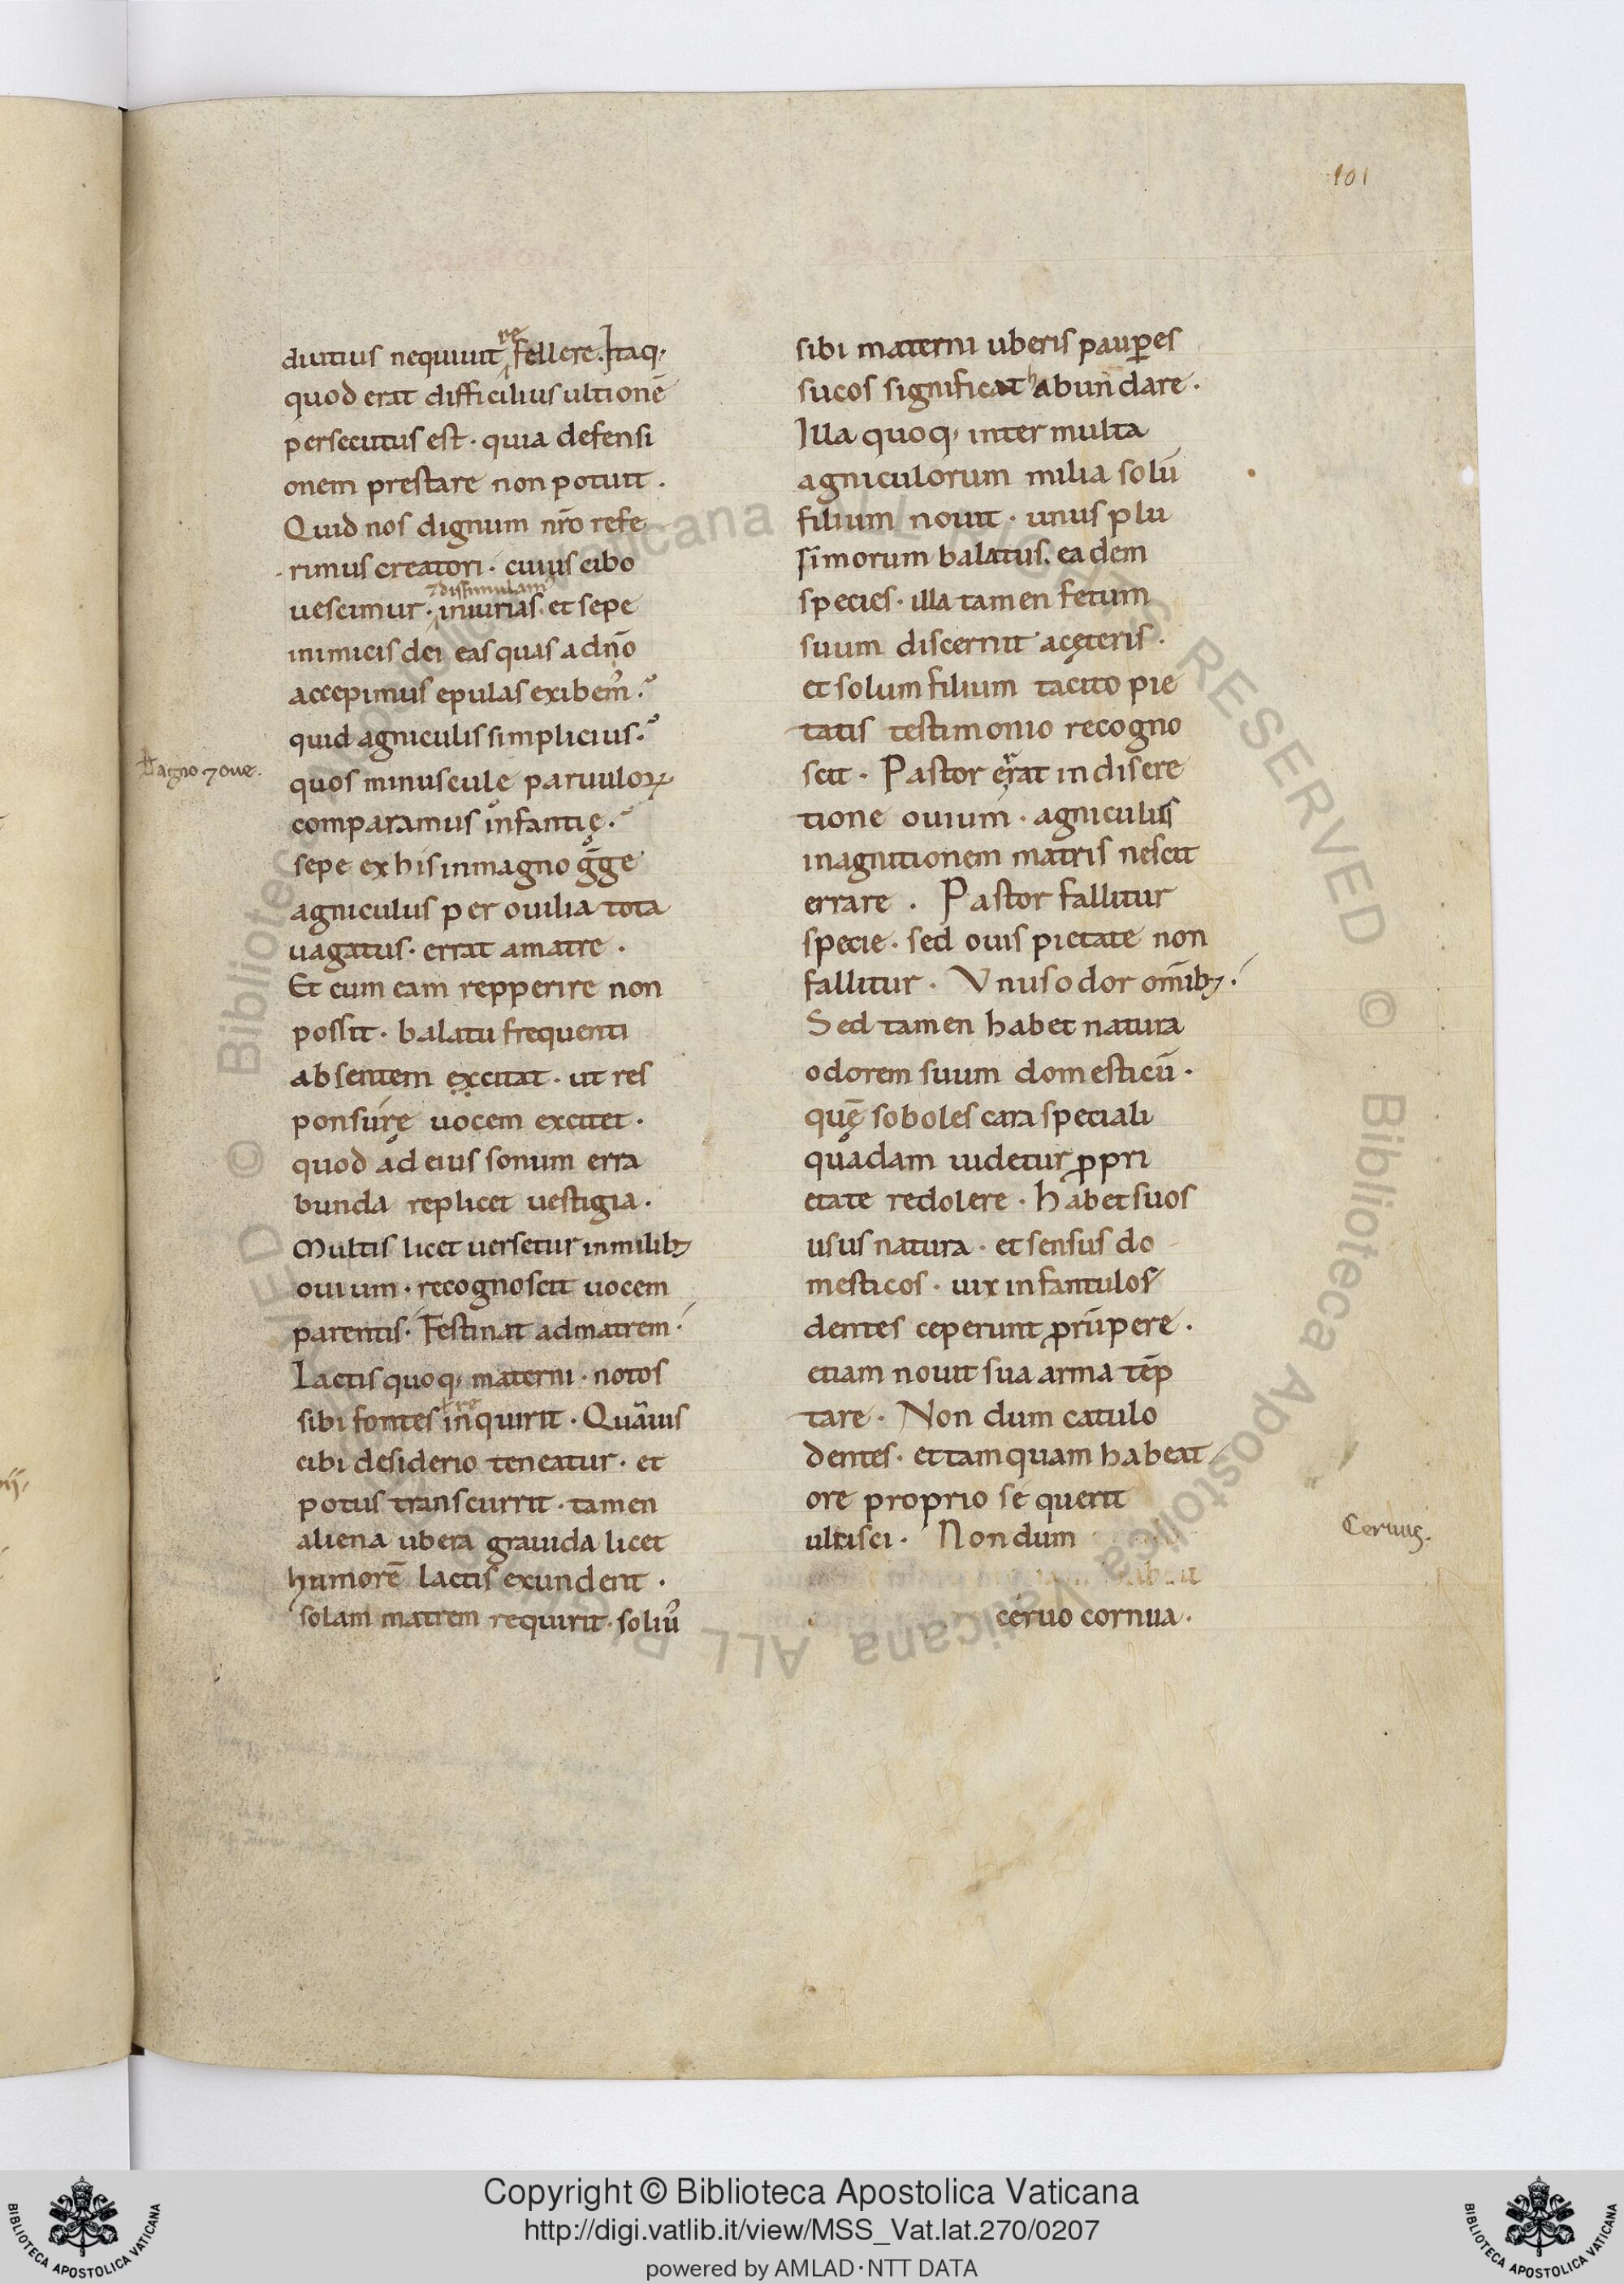 101
diutius nequiuit refellere. Itaq;
quod erat difficilius ultionē
persecutus est · quia defensi
onem prestare non potuit .
Quid nos dignum nr̄o refe
rimus creatori · cuius cibo
uescimur · ⁊ dissimulam iniurias · et sepe
inimicis dei eas quas a dn̄o
accepimus epulas exibem᷒ .
quid agniculis simplicius .
quos minuscule paruuloꝝ
comparamus infantię .
sepe ex his in magno g̊ge
agniculus per ouilia tota
uagatus · errat a matre .
Et cum eam repperire non
possit · balatu frequenti
absentem excitat · ut res
ponsure uocem excitet .
quod ad eius sonum erra
bunda replicet uestigia .
Multis licet uersetur in milib;
ouium · recognoscit uocem
parentis · Festinat ad matrem .
Lactis quoq; materni · notos
sibi fontes inquirit · Quāuis
cibi desiderio teneatur · et
potus transcurrit · tamen
aliena ubera grauida licet
humorē lactis exundent .
solam matrem requirit · soliu᷒
Dagno ⁊ oue.
sibi materni uberis pauꝑes
sucos significat habundare .
Illa quoq; inter multa
agniculorum milia solū
filium nouit · unus plu
simorum balatus. eadem
species · illa tamen fetum
suum discernit a cęteris .
et solum filium tacito pie
tatis testimonio recogno
scit . Pastor errat in discre
tione ouium · agniculus
in agnitionem matris nescit
errare . Pastor fallitur
specie · sed ouis pietate non
fallitur . Vnus odor omīb; .
Sed tamen habet natura
odorem suum domesticū .
quę soboles cara speciali
quadam uidetur ꝓpri
etate redolere . Habet suos
usus natura · et sensus do
mesticos · uix infantulos
dentes ceperunt ꝓrūpere .
etiam nouit sua arma tēp
tare . Non dum catulo
dentes · et tamquam habeat
ore proprio se querit
ulcisci . Non dum
ceruo cornua .
Ceruus.
Copyright © Biblioteca Apostolica Vaticana
http://digi.vatlib.it/view/MSS_Vat.lat.270/0207
powered by AMLAD·NTT DATA
BIBLIOTECA APOSTOLICA VATICANA
BIBLIOTECA APOSTOLICA VATICANA